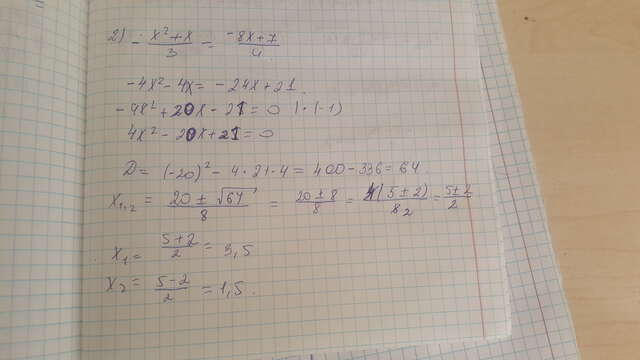 2) - (x²+x)/3 = (-8x+7)/4
-4x²-4x = -24x+21
-4x²+20x-21=0 |·(-1)
4x²-20x+21=0
D = (-20)² - 4·21·4 = 400-336 = 64
x₁,₂ = (20 ± √64)/8 = (20±8)/8 = 4(5±2)/8 2 = (5±2)/2
x₁ = (5+2)/2 = 3,5
x₂ = (5-2)/2 = 1,5.